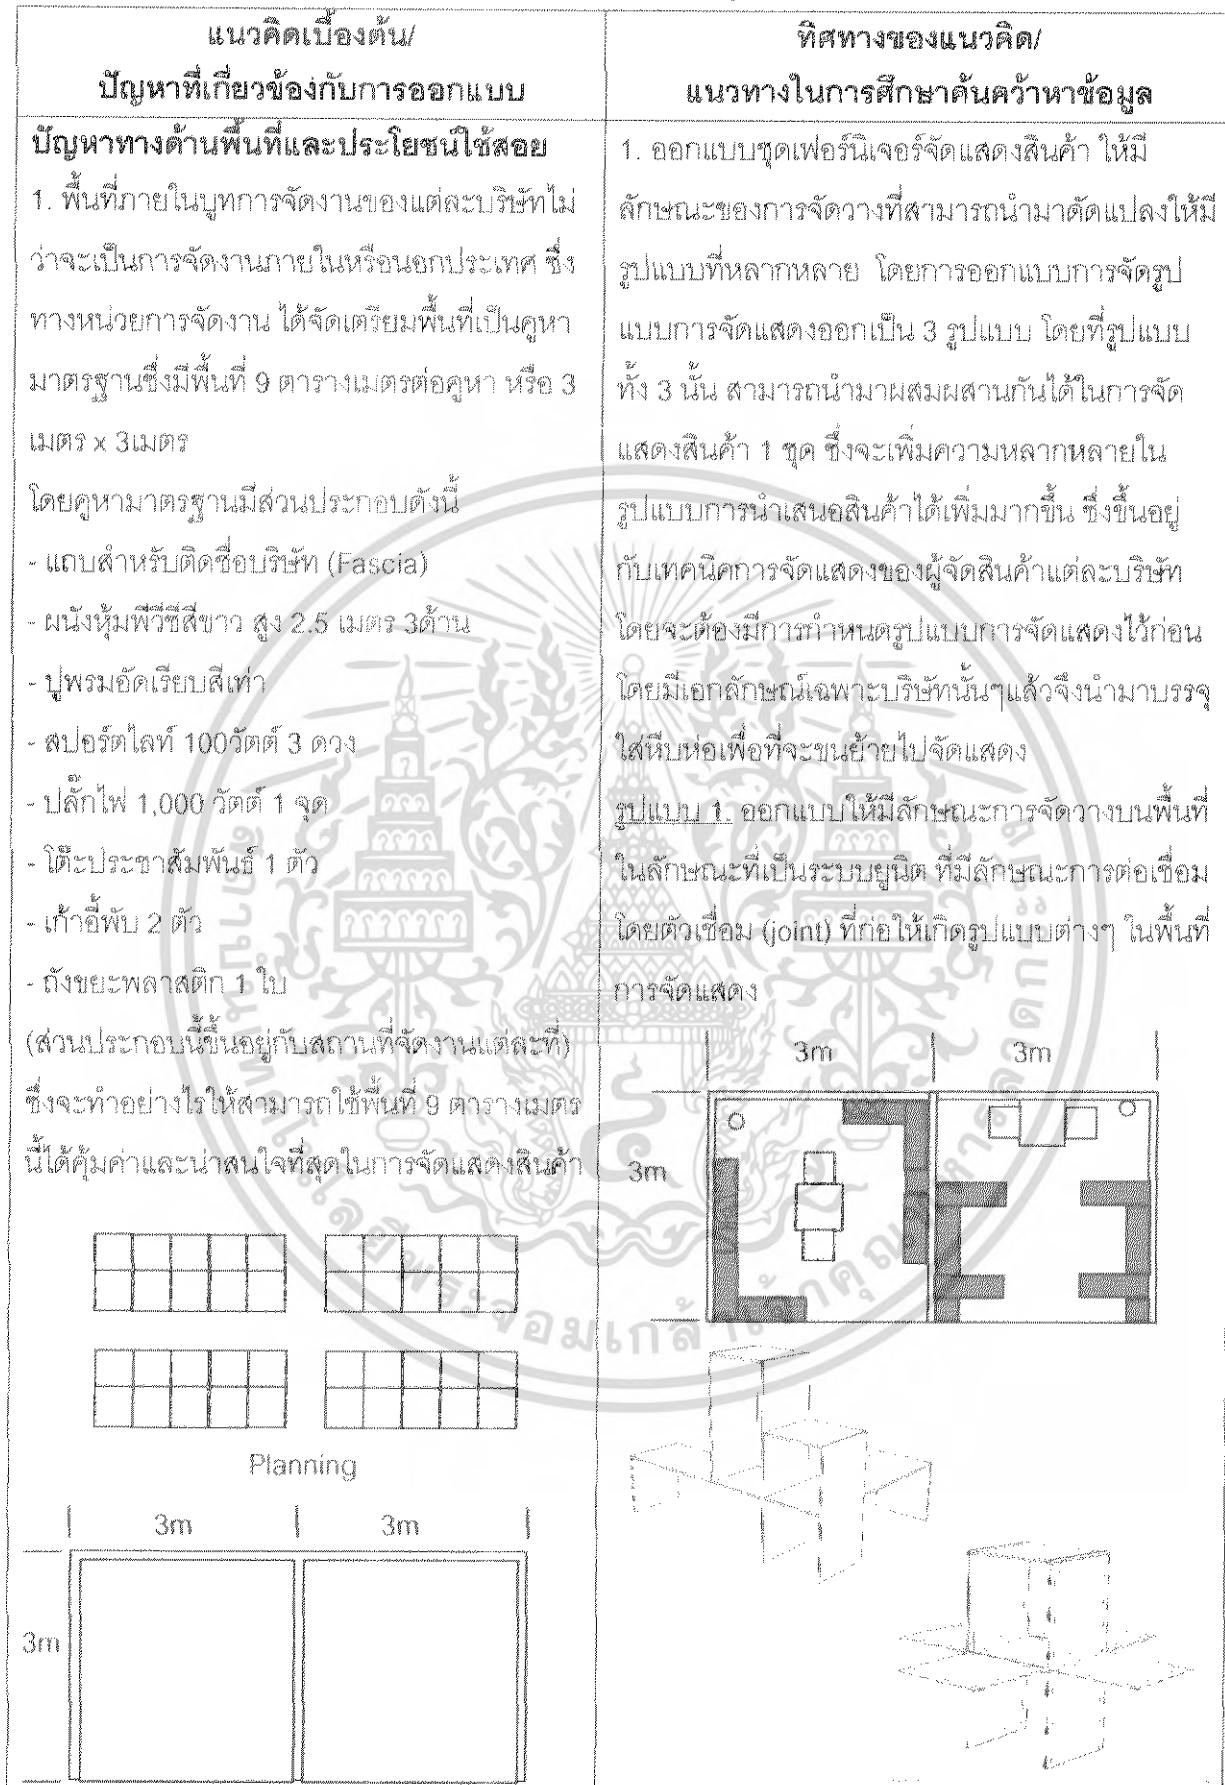 แนวคิดเบื้องต้น/
ปัญหาที่เกี่ยวข้องกับการออกแบบ
ปัญหาทางด้านพื้นที่และประโยชน์ใช้สอย
1. พื้นที่ภายในบูทการจัดงานของแต่ละบริษัทไม่
ว่าจะเป็นการจัดงานภายในหรือนอกประเทศ ซึ่ง
ทางหน่วยการจัดงาน ได้จัดเตรียมพื้นที่เป็นคูหา
มาตรฐานซึ่งมีพื้นที่ 9 ตารางเมตรต่อคูหา หรือ 3
เมตร x 3เมตร
โดยคูหามาตรฐานมีส่วนประกอบดังนี้
- แถบสำหรับติดชื่อบริษัท (Fascia)
- ผนังหุ้มพีวีซีสีขาว สูง 2.5 เมตร 3ด้าน
- ปูพรมอัดเรียบสีเทา
- สปอร์ตไลท์ 100วัตต์ 3 ดวง
- ปลั๊กไฟ 1,000 วัตต์ 1 จุด
- โต๊ะประชาสัมพันธ์ 1 ตัว
- เก้าอี้พับ 2 ตัว
- ถังขยะพลาสติก 1 ใบ
(ส่วนประกอบนี้ขึ้นอยู่กับสถานที่จัดงานแต่ละที่)
ซึ่งจะทำอย่างไรให้สามารถใช้พื้นที่ 9 ตารางเมตร
นี้ได้คุ้มค่าและน่าสนใจที่สุดในการจัดแสดงสินค้า
Planning
3m 3m
3m
ทิศทางของแนวคิด/
แนวทางในการศึกษาค้นคว้าหาข้อมูล
1. ออกแบบชุดเฟอร์นิเจอร์จัดแสดงสินค้า ให้มี
ลักษณะของการจัดวางที่สามารถนำมาดัดแปลงให้มี
รูปแบบที่หลากหลาย โดยการออกแบบการจัดรูป
แบบการจัดแสดงออกเป็น 3 รูปแบบ โดยที่รูปแบบ
ทั้ง 3 นั้น สามารถนำมาผสมผสานกันได้ในการจัด
แสดงสินค้า 1 ชุด ซึ่งจะเพิ่มความหลากหลายใน
รูปแบบการนำเสนอสินค้าได้เพิ่มมากขึ้น ซึ่งขึ้นอยู่
กับเทคนิคการจัดแสดงของผู้จัดสินค้าแต่ละบริษัท
โดยจะต้องมีการกำหนดรูปแบบการจัดแสดงไว้ก่อน
โดยมีเอกลักษณ์เฉพาะบริษัทนั้นๆแล้วจึงนำมาบรรจุ
ใส่หีบห่อเพื่อที่จะขนย้ายไปจัดแสดง
รูปแบบ 1. ออกแบบให้มีลักษณะการจัดวางบนพื้นที่
ในลักษณะที่เป็นระบบยูนิต ที่มีลักษณะการต่อเชื่อม
โดยตัวเชื่อม (joint) ที่ก่อให้เกิดรูปแบบต่างๆ ในพื้นที่
การจัดแสดง
3m 3m
3m